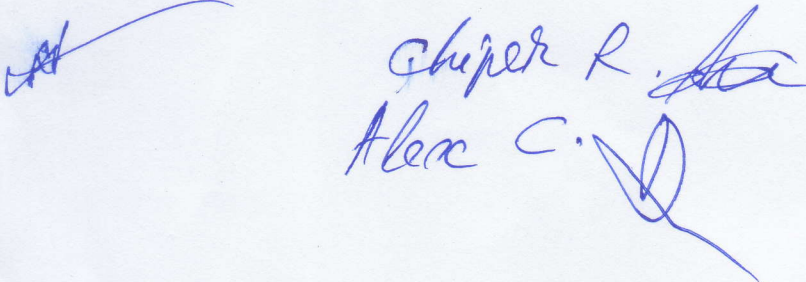 Chiper R.
Alex C.